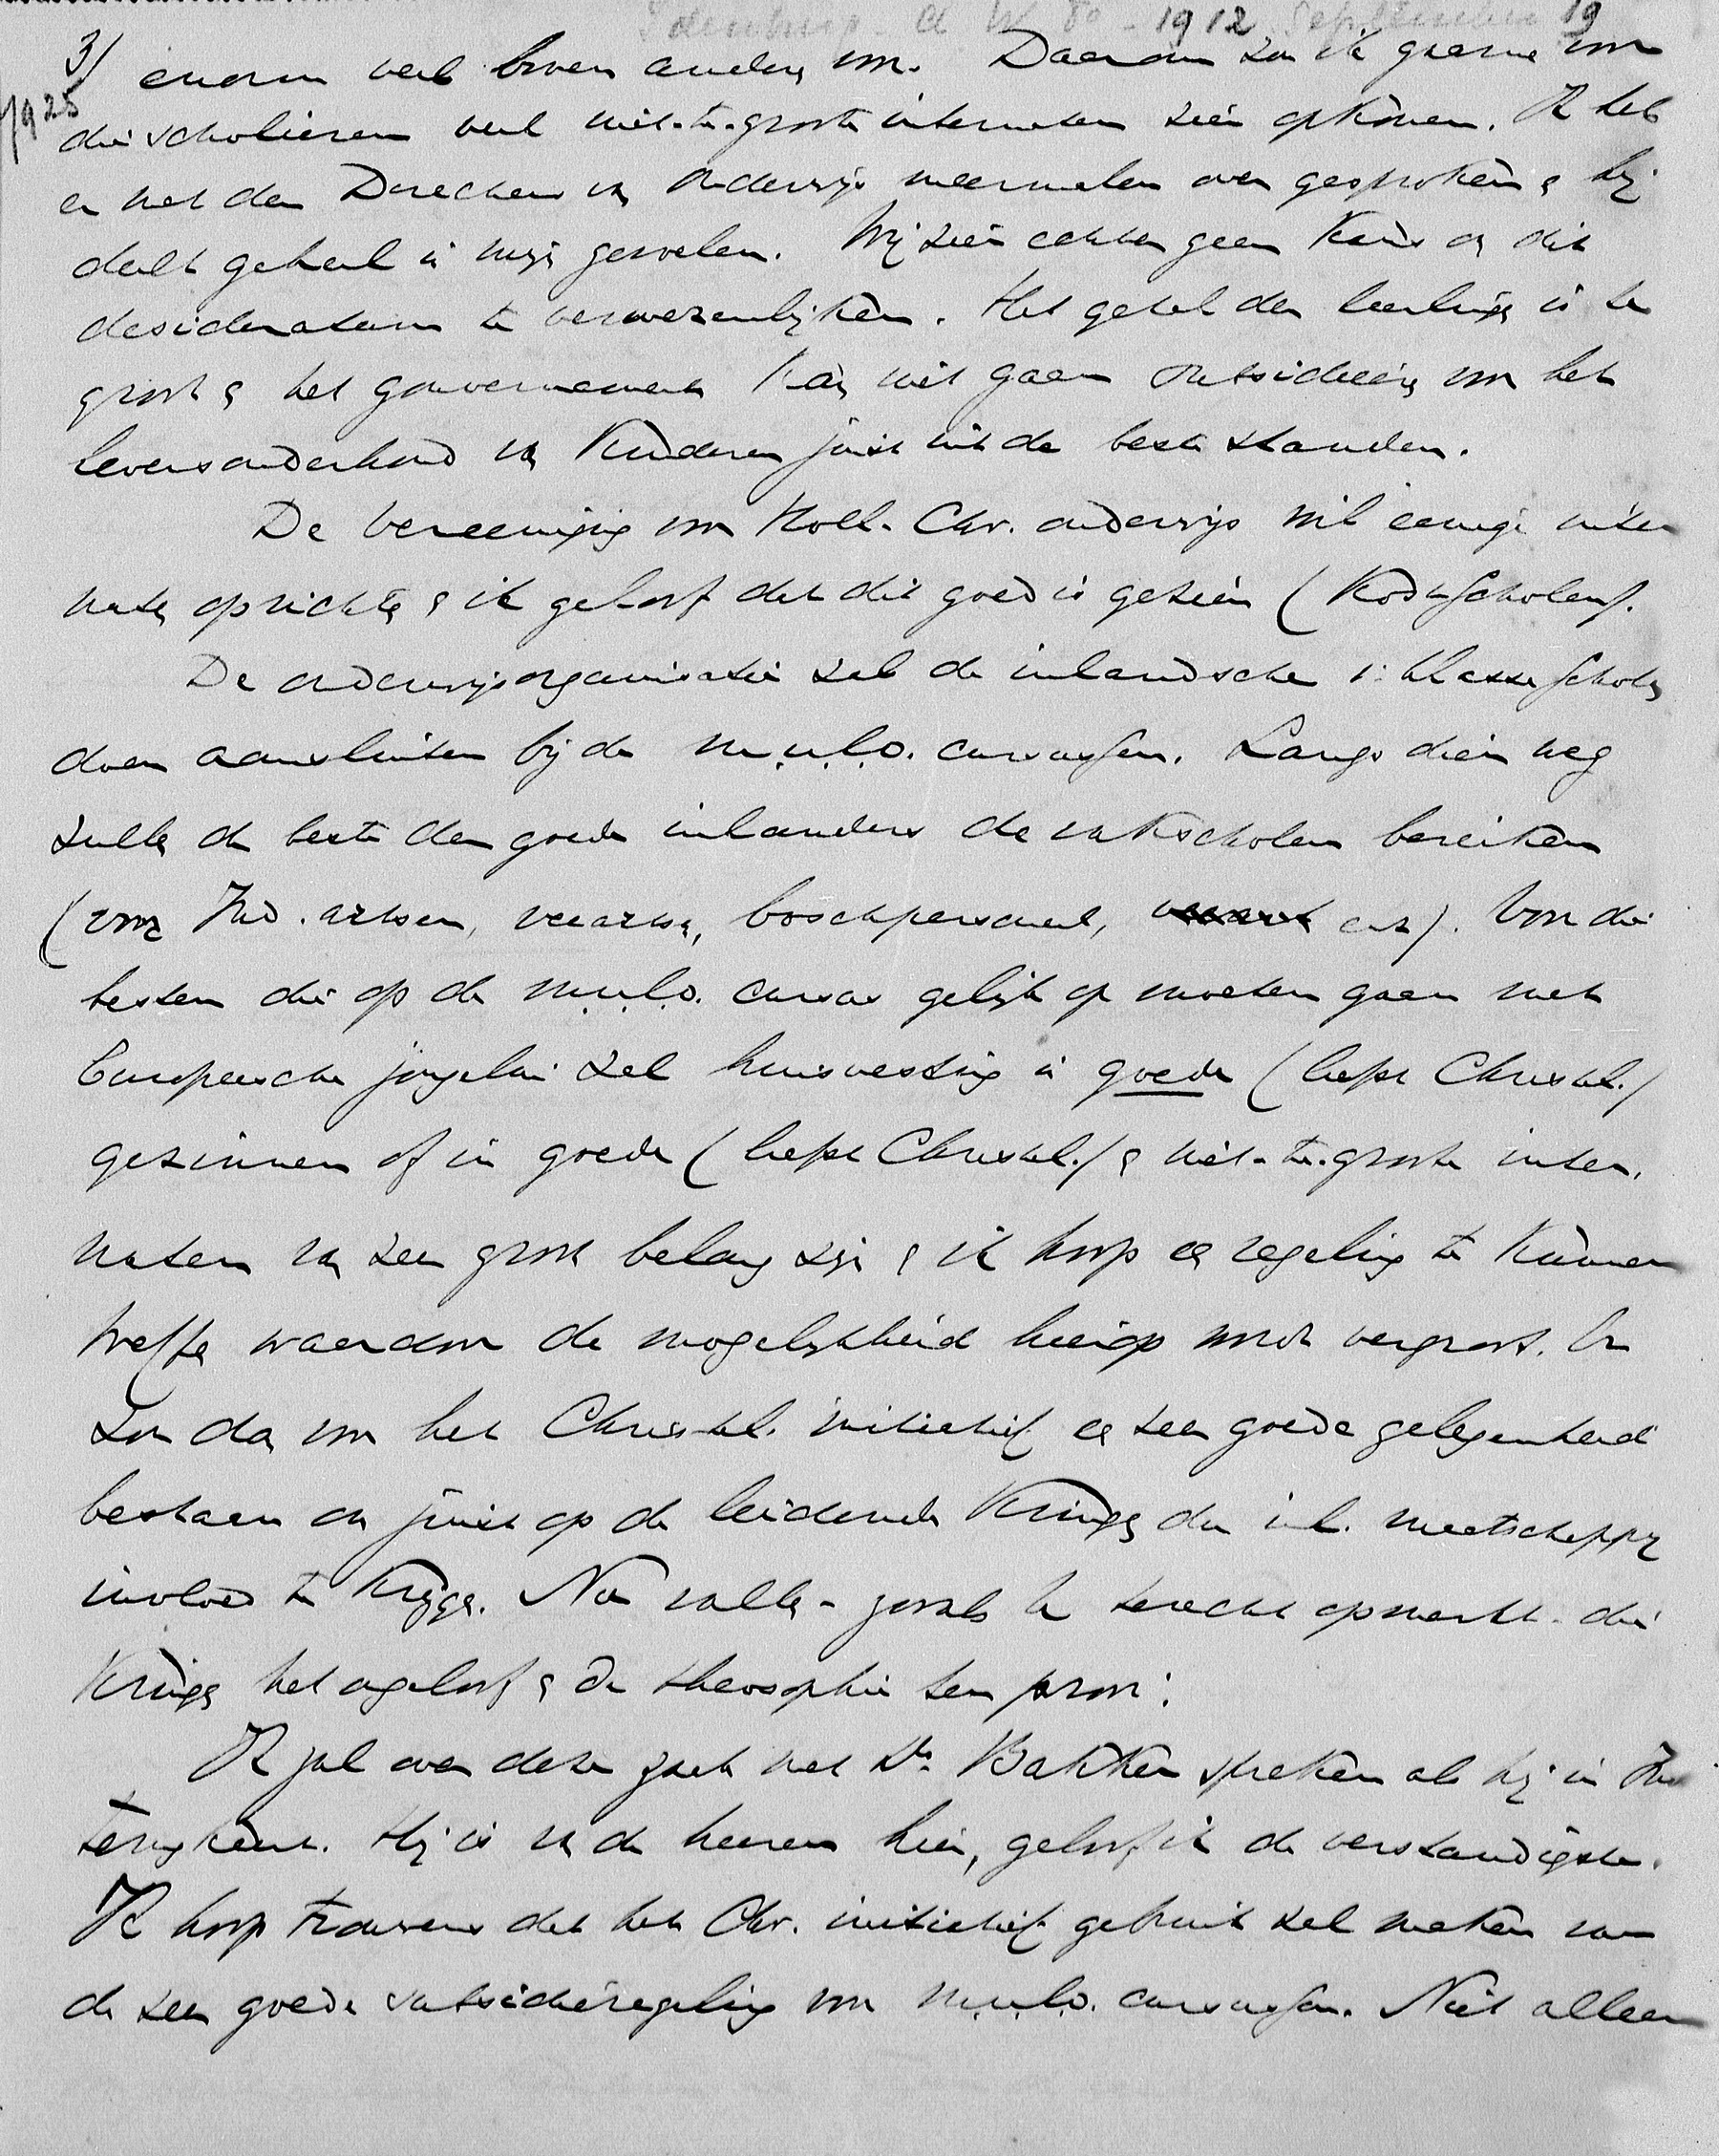 Idenburg a W 1912 September 19
3/ enorm veel boven anders voor. Daarom zou ik gaarne voor
1925
die scholieren veel niet-te-groote internaten zien opkomen. Ik heb
er met den Directeur v. Onderwijs meermalen over gesproken & hij
deelt geheel in mijn gevoelen. Wij zien echter geen kans om dit
desideratum te verwezenlijken. Het getal der leerlingen is te
groot & het gouvernement kan niet gaan subsidieeren voor het
levensonderhoud van kinderen juist uit de beste standen.
De vereeniging voor Holl. Chr. onderwijs wil eenige inter
naten oprichten & ik geloof dat dit goed is gezien (Kostscholen).
De onderwijsorganisatie zal de inlandsche 1e klasse scholen
doen aansluiten bij de m.u.l.o. cursussen. Langs dien weg
zullen de beste der goede inlanders de vakscholen bereiken
(voor Ind. artsen, veeartsen, boschpersoneel, etc). Voor die
besten die op de m.u.l.o. cursus gelijk op moeten gaan met
Europeesche jongelui zal huisvesting in goede (liefst Christel.)
gezinnen of in goede (liefst Christel.) & niet-te-groote inter.
naten van zeer groot belang zijn & ik hoop een regeling te kunnen
treffen waardoor de mogelijkheid hierop wordt vergroot. Er
zou dan voor het Christel. initiatief een zeer goede gelegenheid
bestaan om juist op de leidende kringen der inl. maatschappij
invloed te krijgen. Nu vallen - zooals U terecht opmerkt - die
kringen het ongeloof & de theosophie ten prooi.
Ik zal over deze zaak met Ds. Bakker spreken als hij in Indië
terugkeert. Hij is van de heeren hier, geloof ik de verstandigste.
Ik hoop trouwens dat het Chr. initiatief gebruik zal maken van
de zeer goede subsidieregeling voor m.u.l.o. cursussen. Niet alleen